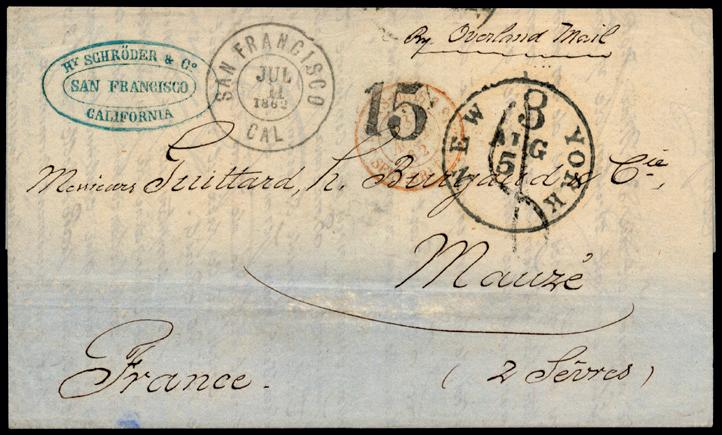 Hy SCHRÖDER & Co
SAN FRANCISCO
CALIFORNIA
SAN FRANCISCO
JUL
11
1862
CAL
By Overland Mail
15
NEW YORK
3
AUG
5
Messieurs Guittard, h. & Cie,
Mauzé
France.
(2 Sèvres)